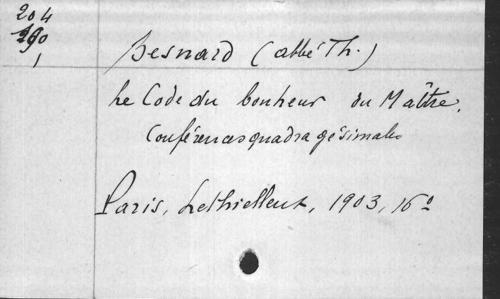 204
Besnard (abbé Th.)
Le Code du bonheur du Maître.
Conférences quadragésimales
Paris, Lethielleux, 1903, 16º